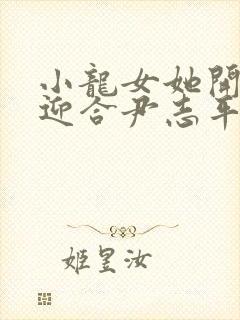 小龍女她開
迎合尹志平
姬昱汝